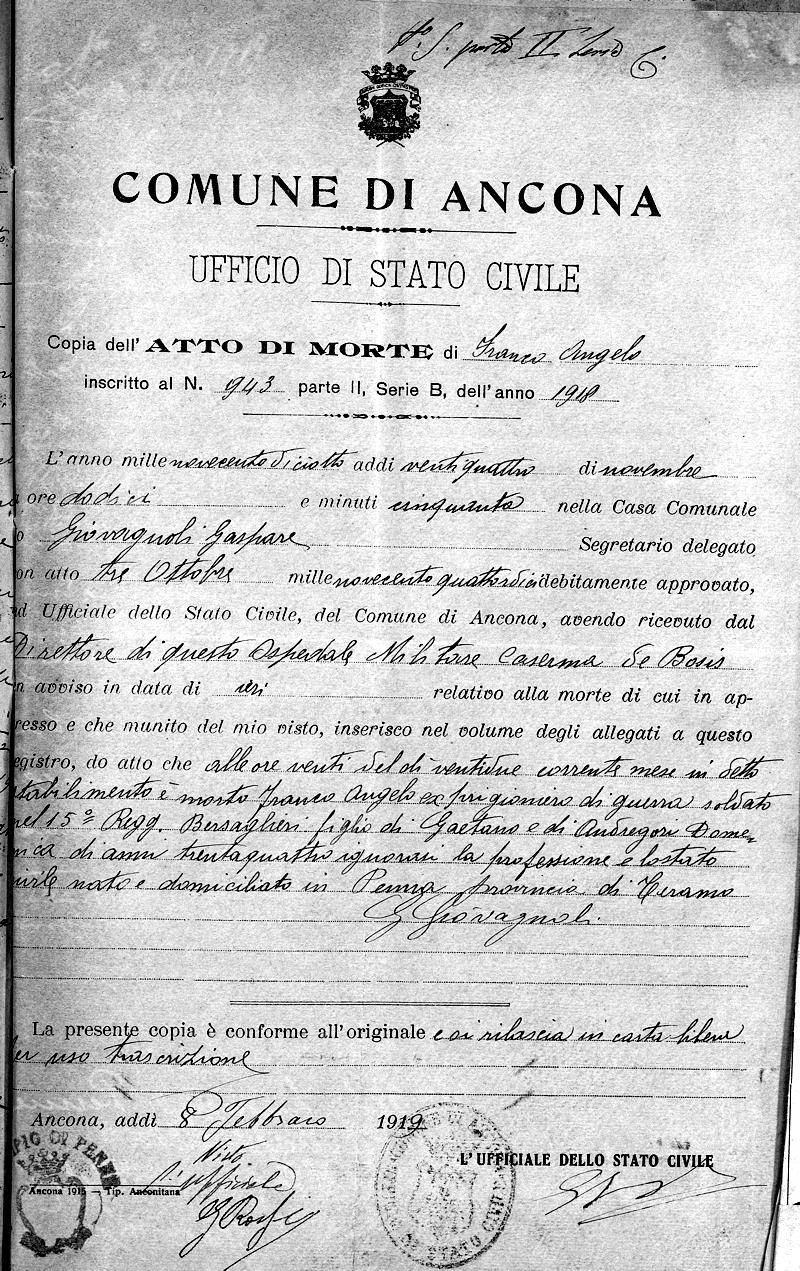 N.º 5. parte II Serie C.
COMUNE DI ANCONA
UFFICIO DI STATO CIVILE
Copia dell' ATTO DI MORTE di Franco Angelo
inscritto al N. 943 parte II, Serie B, dell'anno 1918
L'anno mille novecentodiciotto addi ventiquattro di novembre
ore dodici e minuti cinquanta nella Casa Comunale
o Giovagnoli Gaspare Segretario delegato
on atto tre Ottobre mille novecentoquattordici debitamente approvato,
d Ufficiale dello Stato Civile, del Comune di Ancona, avendo ricevuto dal
Direttore di questo Ospedale Militare Caserma de Bosis
n avviso in data di ieri relativo alla morte di cui in ap-
resso e che munito del mio visto, inserisco nel volume degli allegati a questo
egistro, do atto che alle ore venti del dì ventidue corrente mese in detto
tabilimento è morto Franco Angelo ex prigioniero di guerra soldato
nel 15º Regg. Bersaglieri figlio di Gaetano e di Andregori Dome-
nica di anni trentaquattro ignorasi la professione e lo stato
civile nato e domiciliato in Penna provincia di Teramo
G Giovagnoli.
La presente copia è conforme all'originale e si rilascia in carta libera
er uso trascrizione
Ancona, addì 8 Febbraio 1919
PIO DI PENN
Visto
L'ufficiale
Ancona 1915 — Tip. Anconitana
L'UFFICIALE DELLO STATO CIVILE
DI STATO CIVILE